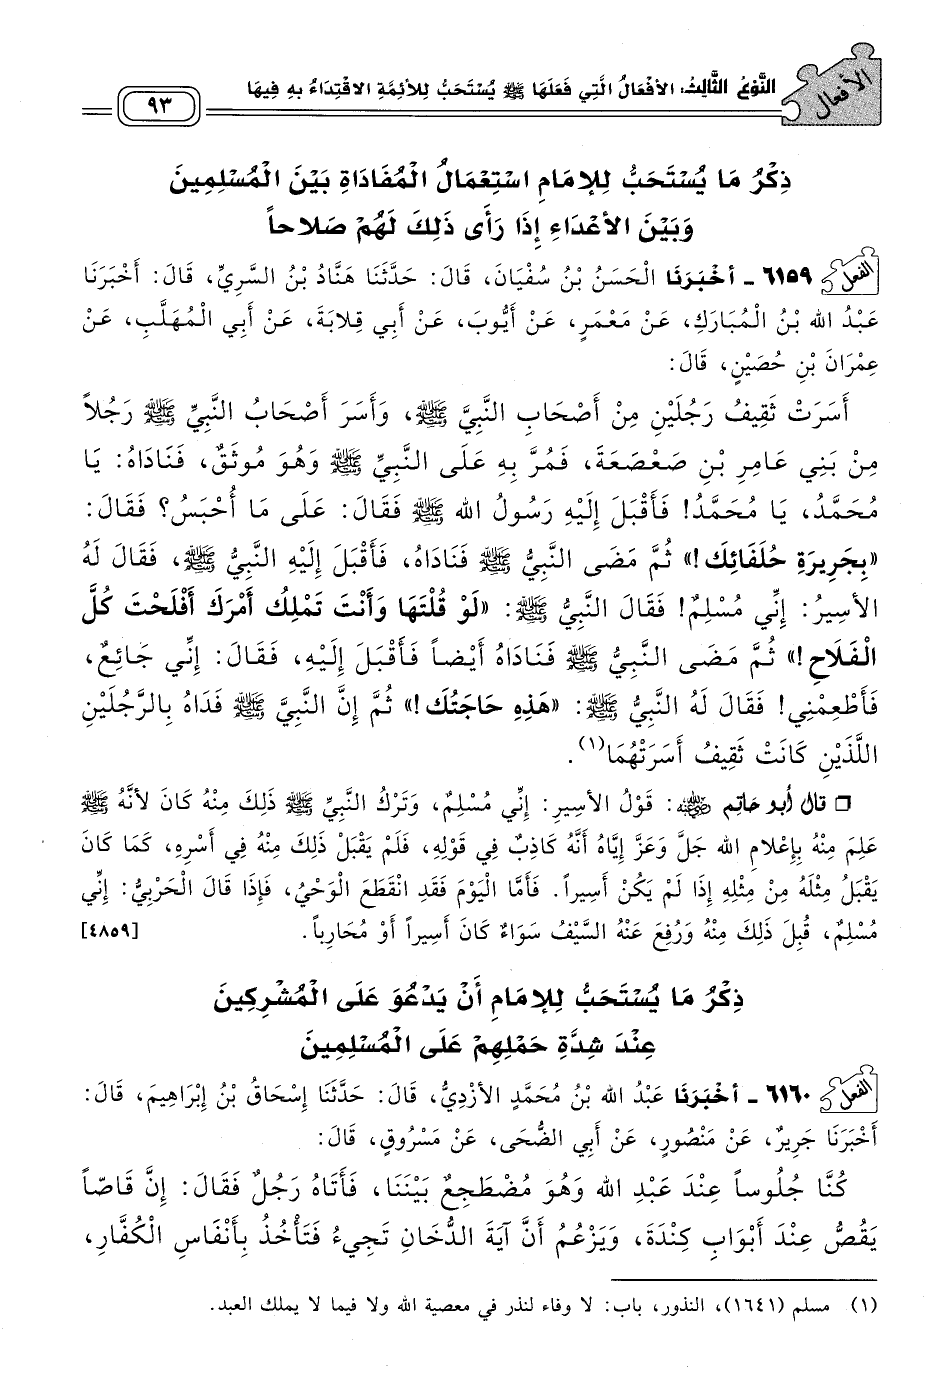 الأفعال
النَّوْعُ الثَّالِثُ: الأَفْعَالُ الَّتِي فَعَلَهَا ﷺ يُسْتَحَبُّ لِلأَئِمَّةِ الاقْتِدَاءُ بِهِ فِيهَا
٩٣
ذِكْرُ مَا يُسْتَحَبُّ لِلإمَامِ اسْتِعْمَالُ الْمُفَادَاةِ بَيْنَ الْمُسْلِمِينَ
وَبَيْنَ الأَعْدَاءِ إِذَا رَأَى ذَلِكَ لَهُمْ صَلَاحاً
الفعل ٦١٥٩ ـ أخْبَرَنَا الْحَسَنُ بْنُ سُفْيَانَ، قَالَ: حَدَّثَنَا هَنَّادُ بْنُ السَّرِيِّ، قَالَ: أَخْبَرَنَا
عَبْدُ الله بْنُ الْمُبَارَكِ، عَنْ مَعْمَرٍ، عَنْ أَيُّوبَ، عَنْ أَبِي قِلَابَةَ، عَنْ أَبِي الْمُهَلَّبِ، عَنْ
عِمْرَانَ بْنِ حُصَيْنٍ، قَالَ:
أَسَرَتْ ثَقِيفُ رَجُلَيْنِ مِنْ أَصْحَابِ النَّبِيِّ ﷺ، وَأَسَرَ أَصْحَابُ النَّبِيِّ ﷺ رَجُلاً
مِنْ بَنِي عَامِرِ بْنِ صَعْصَعَةَ، فَمُرَّ بِهِ عَلَى النَّبِيِّ ﷺ وَهُوَ مُوثَقٌ، فَنَادَاهُ: يَا
مُحَمَّدُ، يَا مُحَمَّدُ! فَأَقْبَلَ إِلَيْهِ رَسُولُ الله ﷺ فَقَالَ: عَلَى مَا أُحْبَسُ؟ فَقَالَ:
«بِجَرِيرَةِ حُلَفَائِكَ!» ثُمَّ مَضَى النَّبِيُّ ﷺ فَنَادَاهُ، فَأَقْبَلَ إِلَيْهِ النَّبِيُّ ﷺ، فَقَالَ لَهُ
الأَسِيرُ: إِنِّي مُسْلِمٌ! فَقَالَ النَّبِيُّ ﷺ: «لَوْ قُلْتَهَا وَأَنْتَ تَمْلِكُ أَمْرَكَ أَفْلَحْتَ كُلَّ
الْفَلَاحِ!» ثُمَّ مَضَى النَّبِيُّ ﷺ فَنَادَاهُ أَيْضاً فَأَقْبَلَ إِلَيْهِ، فَقَالَ: إِنِّي جَائِعٌ،
فَأَطْعِمْنِي! فَقَالَ لَهُ النَّبِيُّ ﷺ: «هَذِهِ حَاجَتُكَ!» ثُمَّ إِنَّ النَّبِيَّ ﷺ فَدَاهُ بِالرَّجُلَيْنِ
اللَّذَيْنِ كَانَتْ ثَقِيفُ أَسَرَتْهُمَا(١).
❑ قال أبو حاتم رضي الله عنه: قَوْلُ الأَسِيرِ: إِنِّي مُسْلِمٌ، وَتَرْكُ النَّبِيِّ ﷺ ذَلِكَ مِنْهُ كَانَ لأَنَّهُ ﷺ
عَلِمَ مِنْهُ بِإِعْلَامِ الله جَلَّ وَعَزَّ إِيَّاهُ أَنَّهُ كَاذِبٌ فِي قَوْلِهِ، فَلَمْ يَقْبَلْ ذَلِكَ مِنْهُ فِي أَسْرِهِ، كَمَا كَانَ
يَقْبَلُ مِثْلَهُ مِنْ مِثْلِهِ إِذَا لَمْ يَكُنْ أَسِيراً. فَأَمَّا الْيَوْمَ فَقَدِ انْقَطَعَ الْوَحْيُ، فَإِذَا قَالَ الْحَرْبِيُّ: إِنِّي
مُسْلِمٌ، قُبِلَ ذَلِكَ مِنْهُ وَرُفِعَ عَنْهُ السَّيْفُ سَوَاءٌ كَانَ أَسِيراً أَوْ مُحَارِباً. [٤٨٥٩]
ذِكْرُ مَا يُسْتَحَبُّ لِلإمَامِ أَنْ يَدْعُوَ عَلَى الْمُشْرِكِينَ
عِنْدَ شِدَّةِ حَمْلِهِمْ عَلَى الْمُسْلِمِينَ
الفعل ٦١٦٠ ـ أخْبَرَنَا عَبْدُ الله بْنُ مُحَمَّدٍ الأَزْدِيُّ، قَالَ: حَدَّثَنَا إِسْحَاقُ بْنُ إِبْرَاهِيمَ، قَالَ:
أَخْبَرَنَا جَرِيرٌ، عَنْ مَنْصُورٍ، عَنْ أَبِي الضُّحَى، عَنْ مَسْرُوقٍ، قَالَ:
كُنَّا جُلُوساً عِنْدَ عَبْدِ الله وَهُوَ مُضْطَجِعٌ بَيْنَنَا، فَأَتَاهُ رَجُلٌ فَقَالَ: إِنَّ قَاصّاً
يَقُصُّ عِنْدَ أَبْوَابِ كِنْدَةَ، وَيَزْعُمُ أَنَّ آيَةَ الدُّخَانِ تَجِيءُ فَتَأْخُذُ بِأَنْفَاسِ الْكُفَّارِ،
(١) مسلم (١٦٤١)، النذور، باب: لا وفاء لنذر في معصية الله ولا فيما لا يملك العبد.